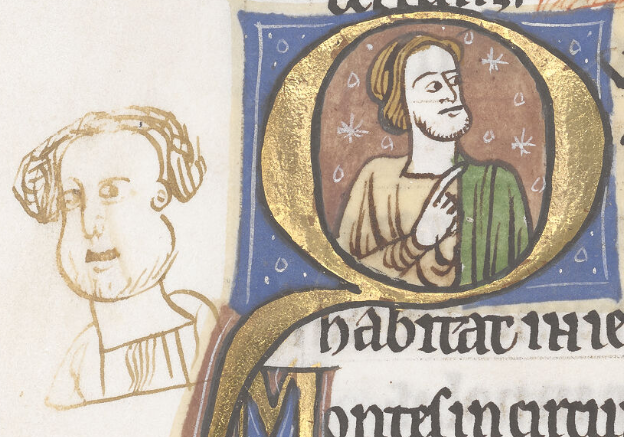 habitat in ie
Montes in circu